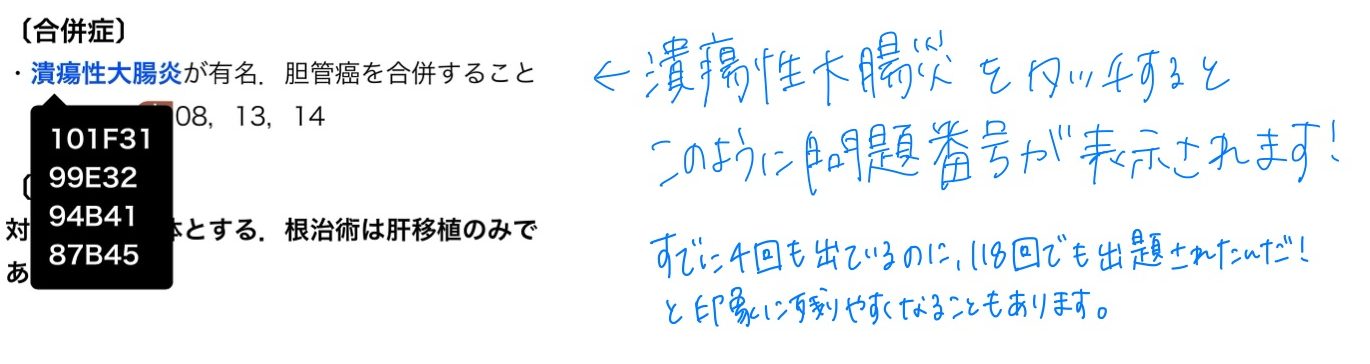 〔合併症〕
・潰瘍性大腸炎が有名．胆管癌を合併すること
08，13，14
101F31
99E32
94B41
87B45
〔
対
体とする．根治術は肝移植のみで
あ
←潰瘍性大腸炎をタッチすると
このように問題番号が表示されます！
すでに4回も出ているのに、118回でも出題されたんだ！
と印象に残りやすくなることもあります。